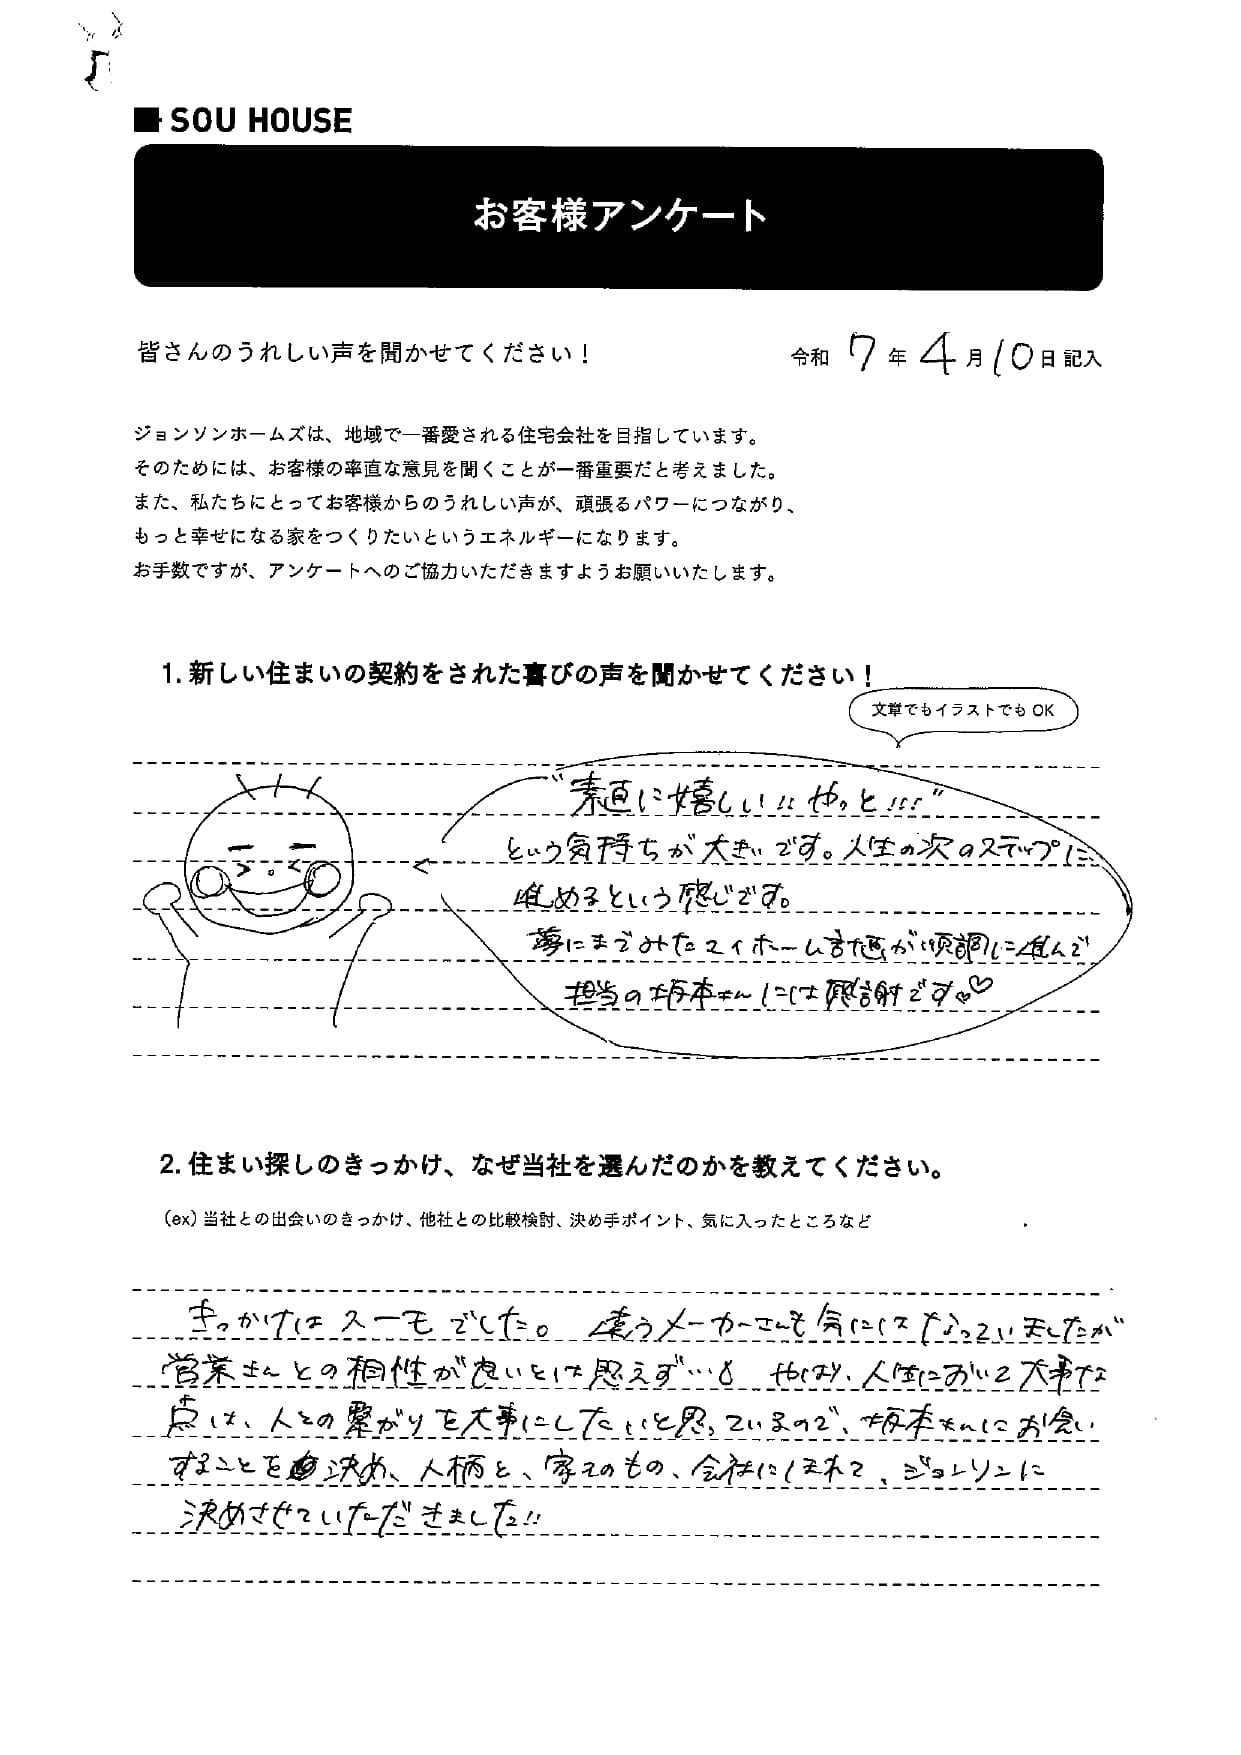 SOU HOUSE
お客様アンケート
皆さんのうれしい声を聞かせてください！
令和 7 年 4 月 10 日 記入
ジョンソンホームズは、地域で一番愛される住宅会社を目指しています。
そのためには、お客様の率直な意見を聞くことが一番重要だと考えました。
また、私たちにとってお客様からのうれしい声が、頑張るパワーにつながり、
もっと幸せになる家をつくりたいというエネルギーになります。
お手数ですが、アンケートへのご協力いただきますようお願いいたします。
1. 新しい住まいの契約をされた喜びの声を聞かせてください！
文章でもイラストでも OK
“素直に嬉しい!! やっと!!!”
という気持ちが大きいです。人生の次のステップに
進めるという感じです。
夢にまでみたマイホーム計画が順調に進んで
担当の坂本さんには感謝です♡
2. 住まい探しのきっかけ、なぜ当社を選んだのかを教えてください。
（ex）当社との出会いのきっかけ、他社との比較検討、決め手ポイント、気に入ったところなど
きっかけはスーモでした。違うメーカーさんも気にはなっていましたが
営業さんとの相性が良いとは思えず…。やはり、人生において大事な
点は、人との繋がりを大事にしたいと思っているので、坂本さんにお会い
することを決め、人柄と、家そのもの、会社にほれて、ジョンソンに
決めさせていただきました!!